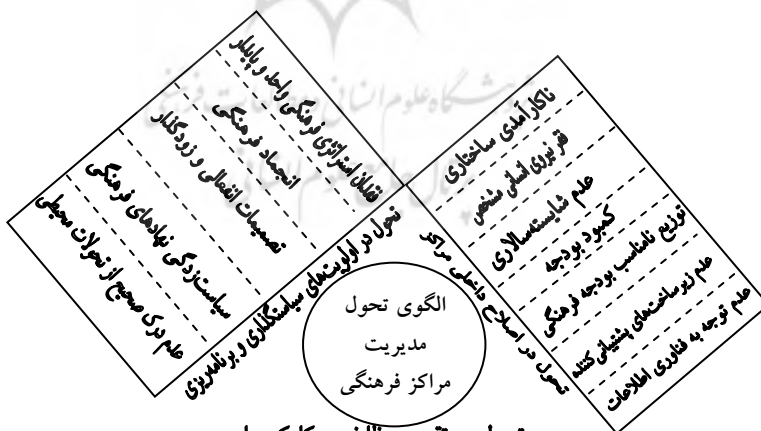 فقدان استراتژی فرهنگی واحد و پایدار
انجماد فرهنگی
تصمیمات انفعالی و زودگذار
سیاست‌زدگی نهادهای فرهنگی
عدم درک صحیح از تحولات محیطی
تحول در اولویت‌های سیاستگذاری و برنامه‌ریزی
ناکارآمدی ساختاری
فقر نیروی انسانی متخصص
عدم شایسته‌سالاری
کمبود بودجه
توزیع نامناسب بودجه فرهنگی
عدم زیرساخت‌های پشتیبانی‌کننده
عدم توجه به فناوری اطلاعات
تحول در اصلاح داخلی مراکز
الگوی تحول
مدیریت
مراکز فرهنگی